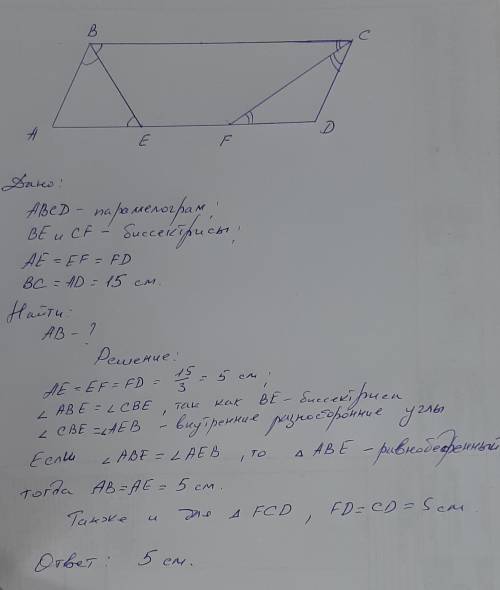 B
C
A
E
F
D
Дано:
ABCD - паралелограм;
BE и CF - биссектрисы;
AE = EF = FD
BC = AD = 15 см.
Найти:
AB - ?
Решение:
AE = EF = FD = 15/3 = 5 см;
∠ ABE = ∠ CBE, так как BE - биссектриса
∠ CBE = ∠ AEB - внутренние разносторонние углы
Если ∠ ABE = ∠ AEB, то △ ABE - равнобедренный
тогда AB = AE = 5 см.
Также и для △ FCD, FD = CD = 5 см
Ответ: 5 см.